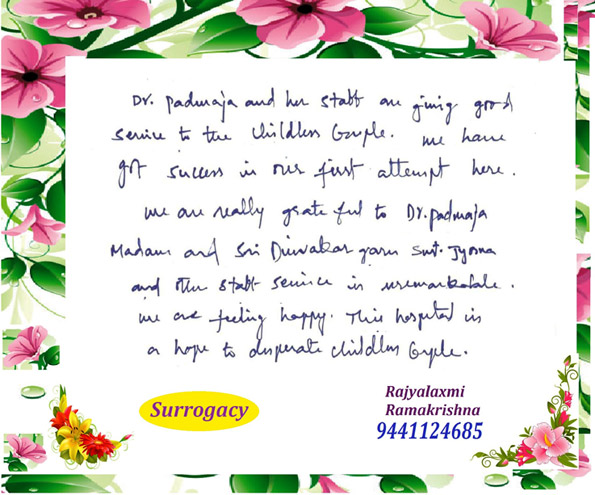 Dr. Padmaja and her staff are giving good
service to the childless Couple. We have
got success in our first attempt here.
We are really grateful to Dr. padmaja
Madam and Sri Diwakar garu Smt. Jyosna
and other staff service is unremarkable.
We are feeling happy. This hospital is
a hope to desperate childless Couple.
Surrogacy
Rajyalaxmi
Ramakrishna
9441124685